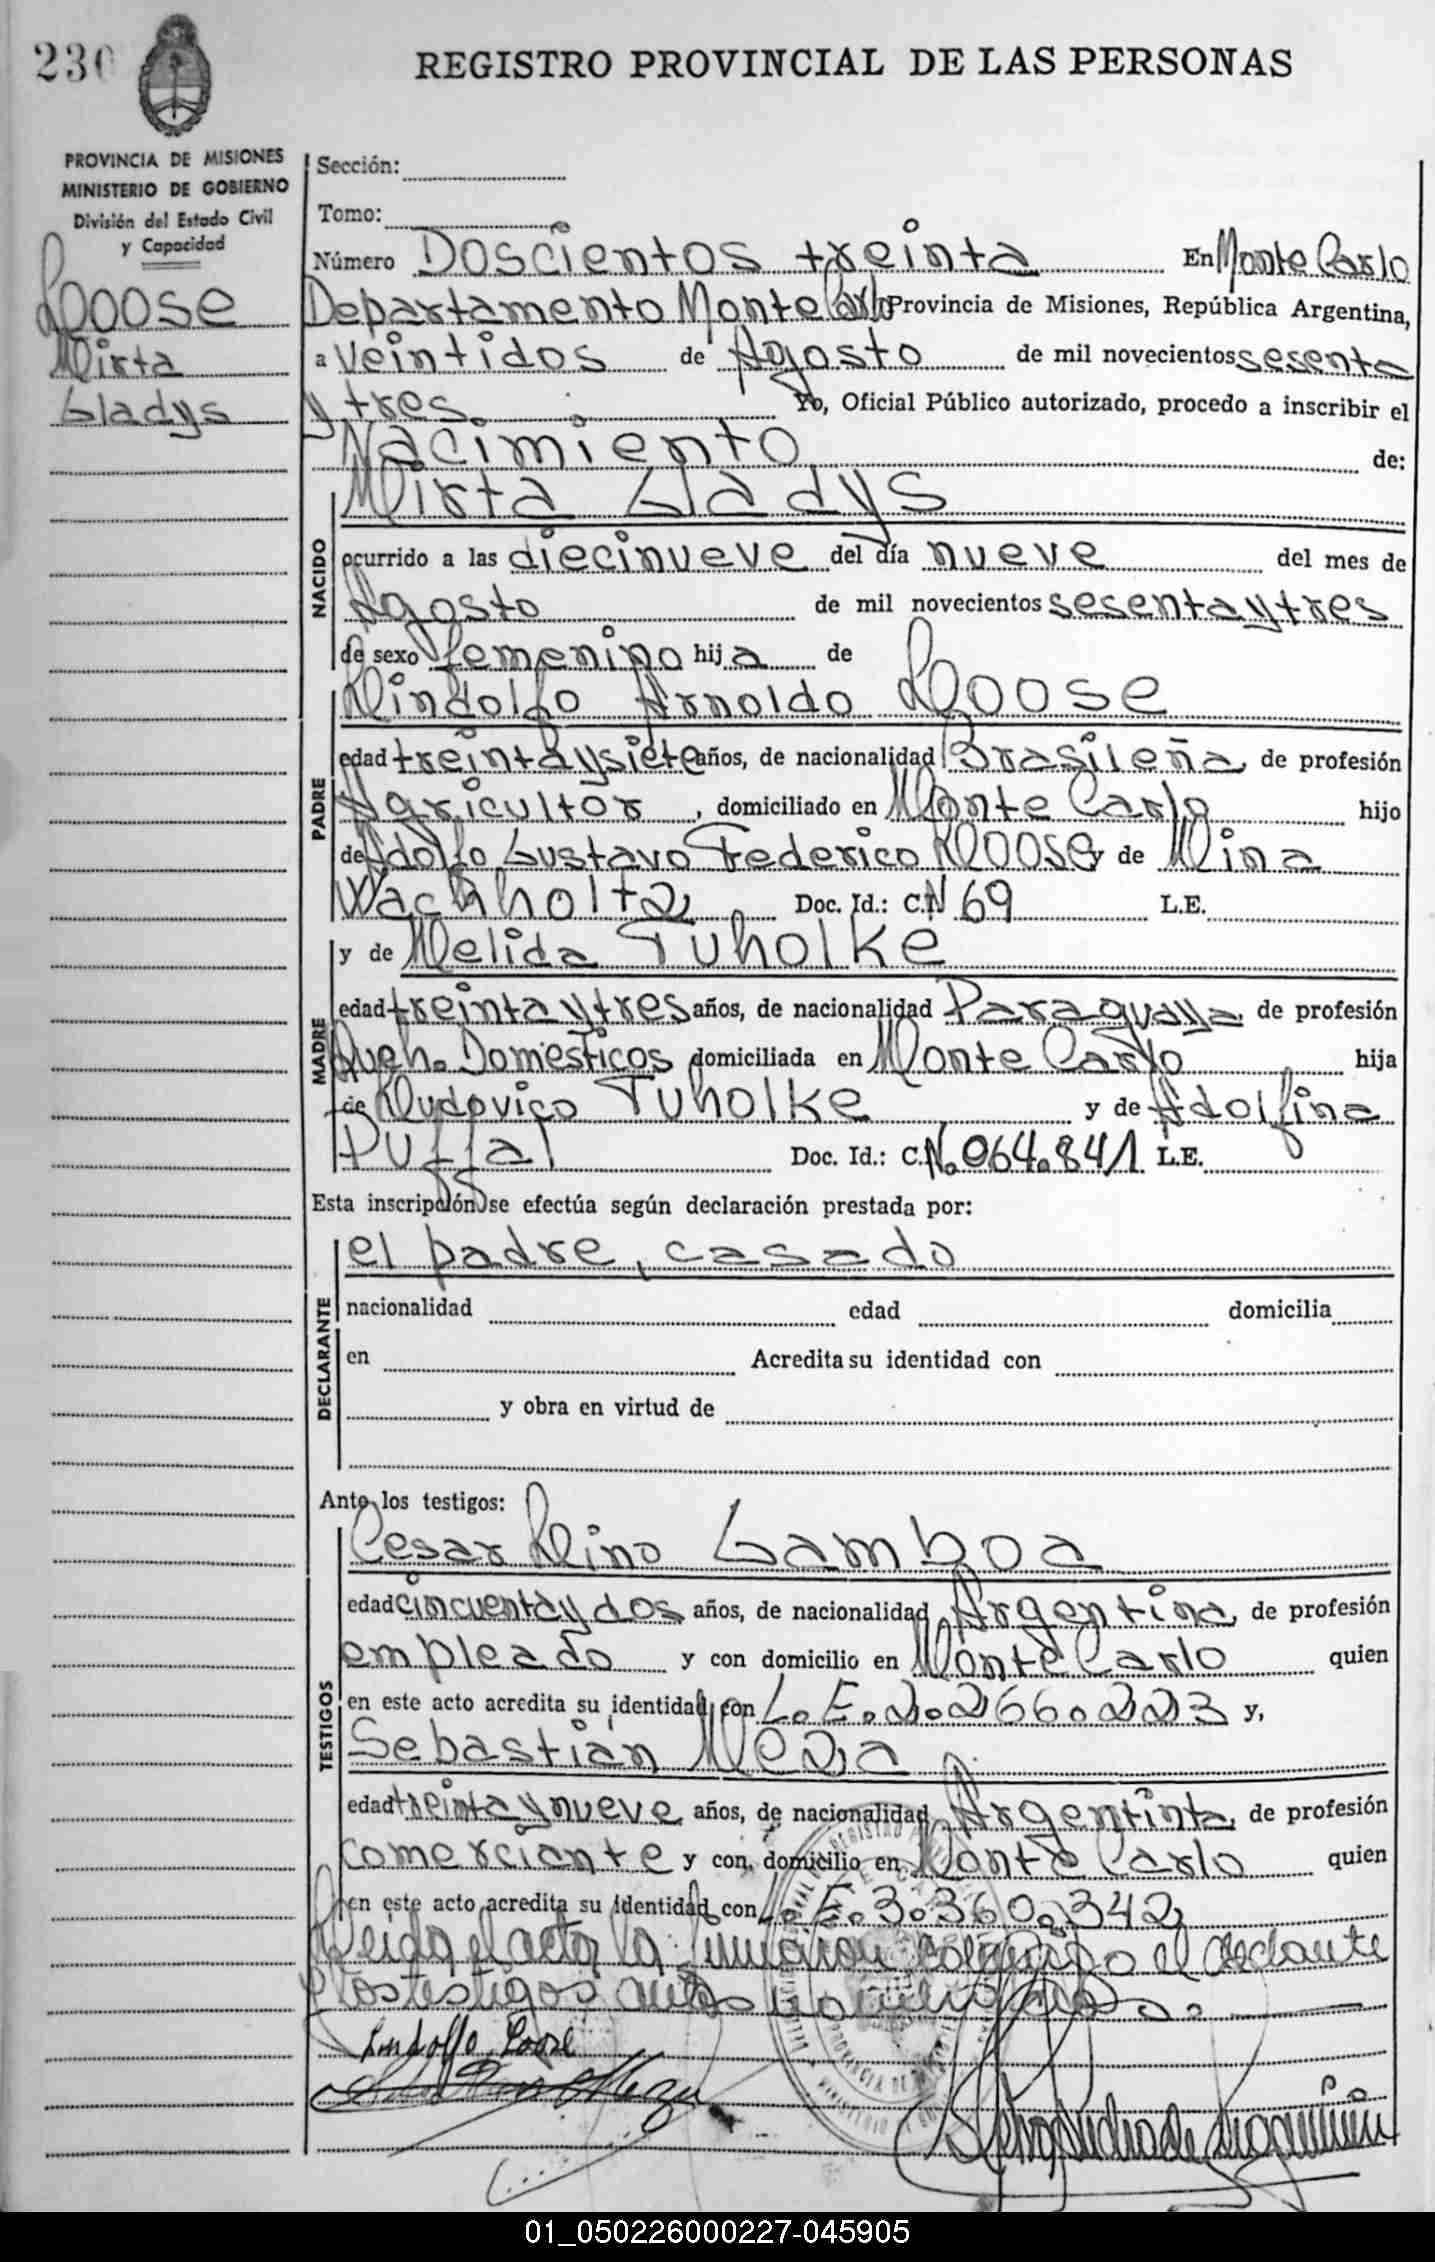 230
REGISTRO PROVINCIAL DE LAS PERSONAS
PROVINCIA DE MISIONES
MINISTERIO DE GOBIERNO
División del Estado Civil
y Capacidad
Loose
Mirta
Gladys
Sección:
Tomo:
Número Doscientos treinta En Monte Carlo
Departamento Monte Carlo Provincia de Misiones, República Argentina,
a veintidos de Agosto de mil novecientos sesenta
y tres Yo, Oficial Público autorizado, procedo a inscribir el
Nacimiento de:
Mirta Gladys
NACIDO
ocurrido a las diecinueve del día nueve del mes de
Agosto de mil novecientos sesenta y tres
de sexo femenino hija de
Lindolfo Arnoldo Loose
PADRE
edad treinta y siete años, de nacionalidad Brasileña, de profesión
Agricultor, domiciliado en Monte Carlo hijo
de Adolfo Gustavo Federico Loose y de Mina
Wachholtz Doc. Id.: C.N 69 L.E.
y de Melida Tuholke
MADRE
edad treinta y tres años, de nacionalidad Paraguaya, de profesión
Queh. Domesticos domiciliada en Monte Carlo hija
de Ludovico Tuholke y de Adolfina
Puffal Doc. Id.: C.N.064.841 L.E.
Esta inscripción se efectúa según declaración prestada por:
el padre, casado
DECLARANTE
nacionalidad edad domicilia
en Acredita su identidad con
y obra en virtud de
Ante los testigos:
Cesar Lino Gamboa
TESTIGOS
edad cincuenta y dos años, de nacionalidad Argentina, de profesión
empleado y con domicilio en Monte Carlo quien
en este acto acredita su identidad con L.E.2.266.223 y,
Sebastián Meza
edad treinta y nueve años, de nacionalidad Argentinta, de profesión
comerciante y con domicilio en Monte Carlo quien
en este acto acredita su identidad con L.E.3.360.342
Leida el acta la firmaron conmigo el declante
y los testigos antes nombrados.
Lindolfo Loose
01_050226000227-045905